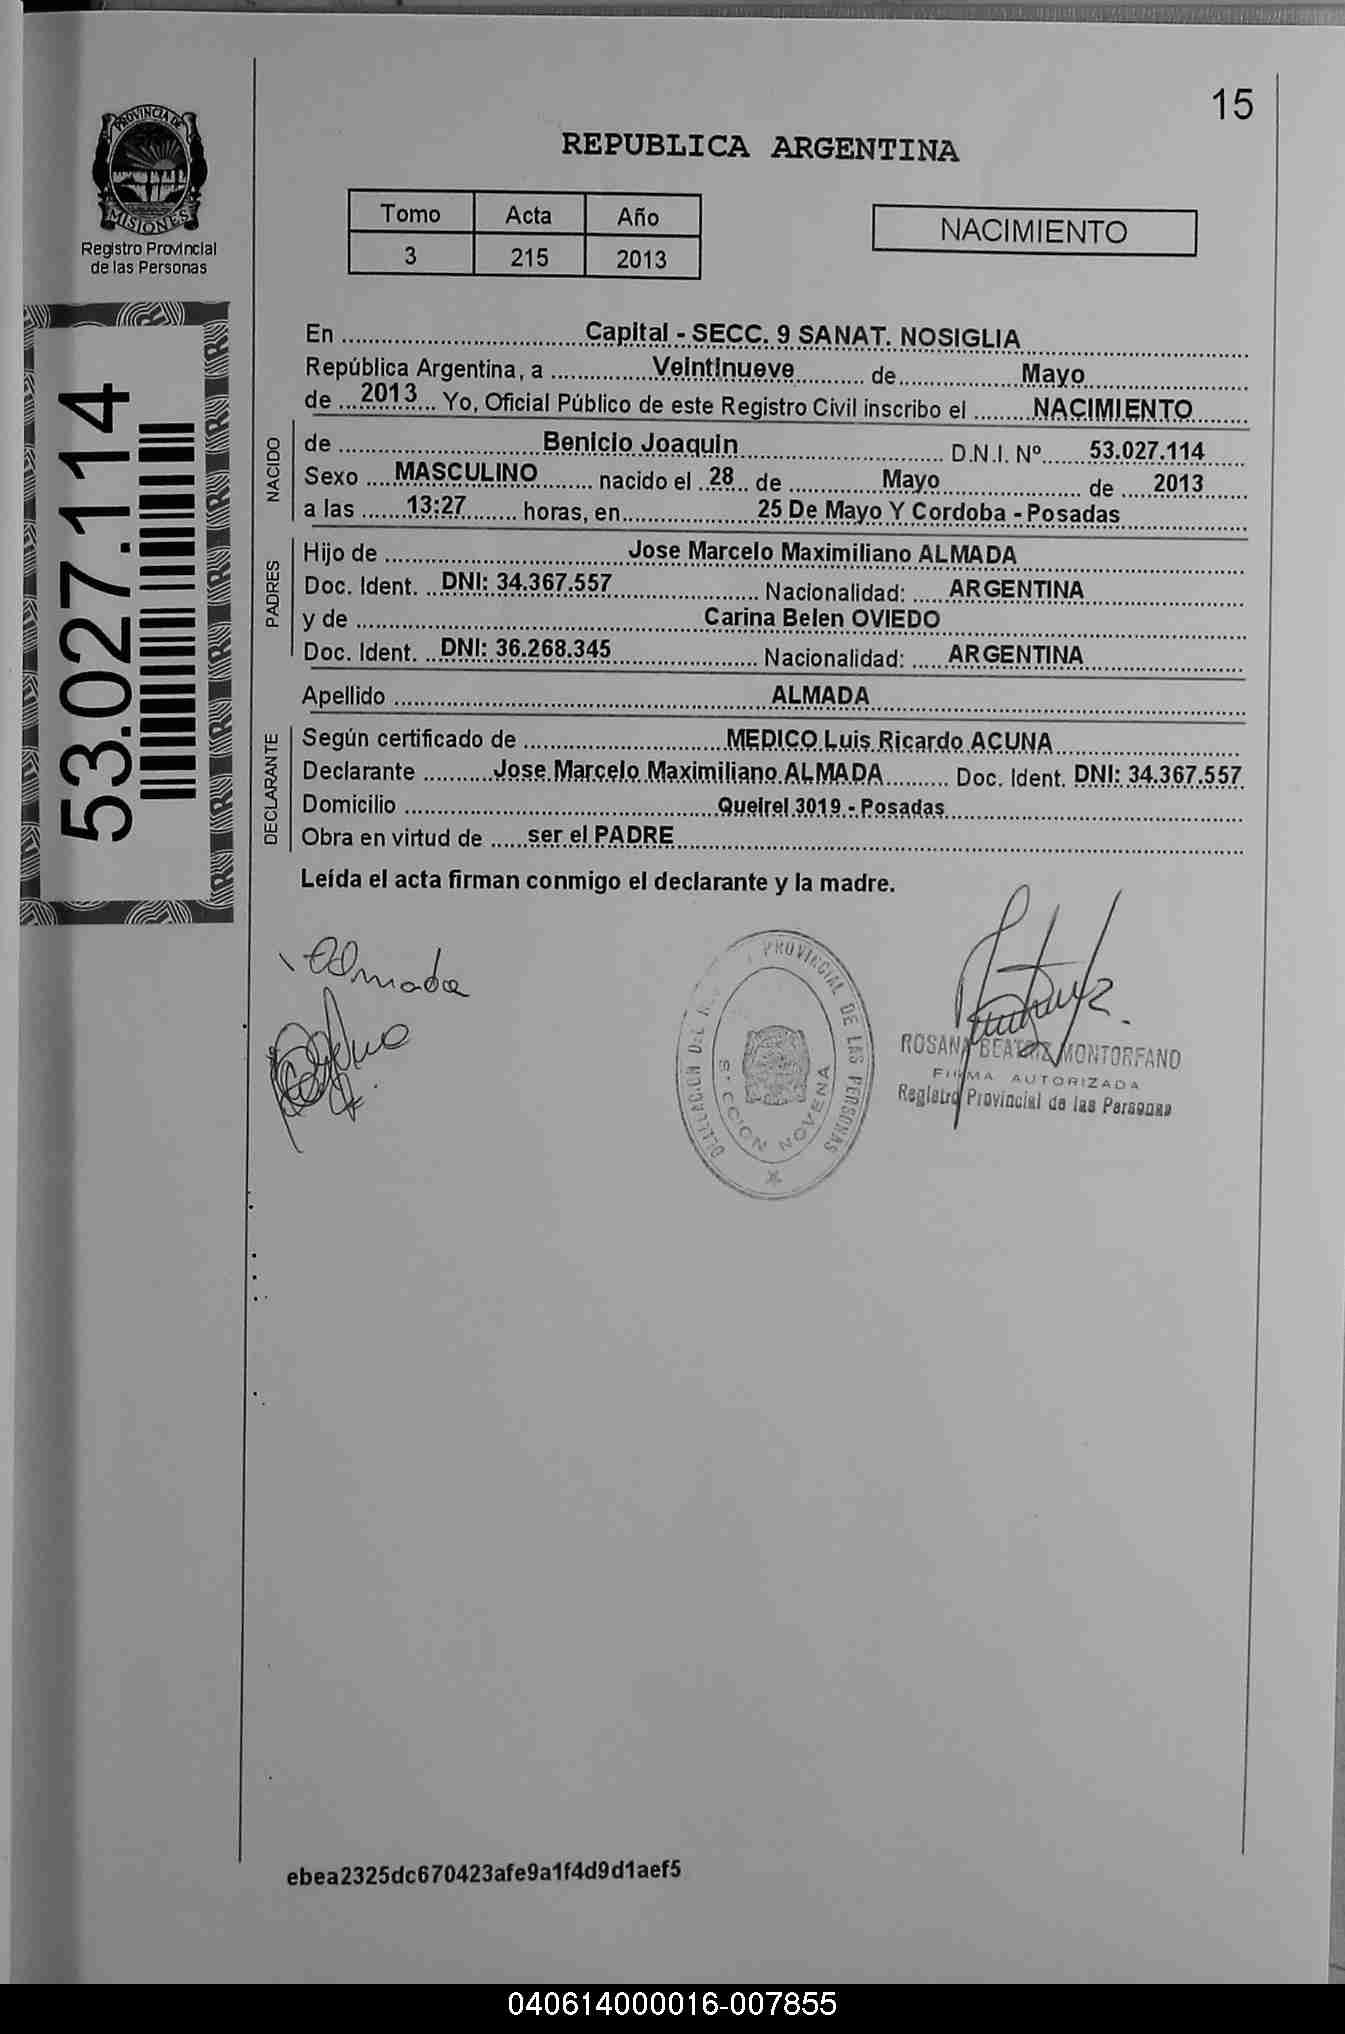 15
PROVINCIA DE
MISIONES
Registro Provincial
de las Personas
REPUBLICA ARGENTINA
Tomo Acta Año
3 215 2013
NACIMIENTO
53.027.114
En ........ Capital - SECC. 9 SANAT. NOSIGLIA
República Argentina, a ........ Veintinueve ........ de ........ Mayo
de ... 2013 ... Yo, Oficial Público de este Registro Civil inscribo el ........ NACIMIENTO
NACIDO
de ........ Benicio Joaquin ........ D.N.I. Nº ...... 53.027.114
Sexo .... MASCULINO ........ nacido el .. 28 .. de ........ Mayo ........ de ..... 2013
a las ...... 13:27 ........ horas, en ........ 25 De Mayo Y Cordoba - Posadas
PADRES
Hijo de ........ Jose Marcelo Maximiliano ALMADA
Doc. Ident. .. DNI: 34.367.557 ........ Nacionalidad: ..... ARGENTINA
y de ........ Carina Belen OVIEDO
Doc. Ident. .. DNI: 36.268.345 ........ Nacionalidad: ..... ARGENTINA
Apellido ........ ALMADA
DECLARANTE
Según certificado de ........ MEDICO Luis Ricardo ACUNA
Declarante ........ Jose Marcelo Maximiliano ALMADA ........ Doc. Ident. DNI: 34.367.557
Domicilio ........ Queirel 3019 - Posadas
Obra en virtud de ..... ser el PADRE
Leída el acta firman conmigo el declarante y la madre.
Almada
PROVINCIAL DE LAS PERSONAS
NOVENA
ROSANA BEATRIZ MONTORFANO
FIRMA AUTORIZADA
Registro Provincial de las Personas
ebea2325dc670423afe9a1f4d9d1aef5
040614000016-007855